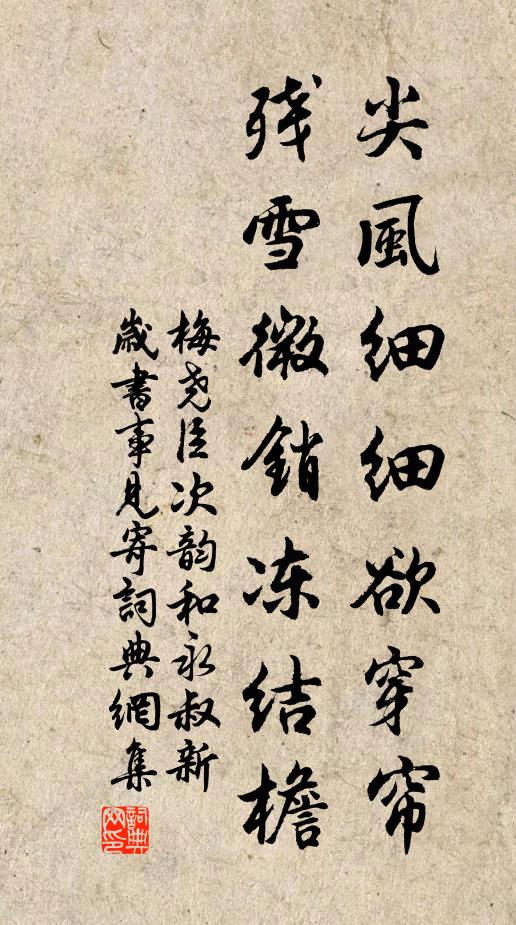 尖風细细欲穿帘
残雪微銷冻结檐
梅尧臣次韵和永叔新
歲書事見寄詞典網集
詞典
网印